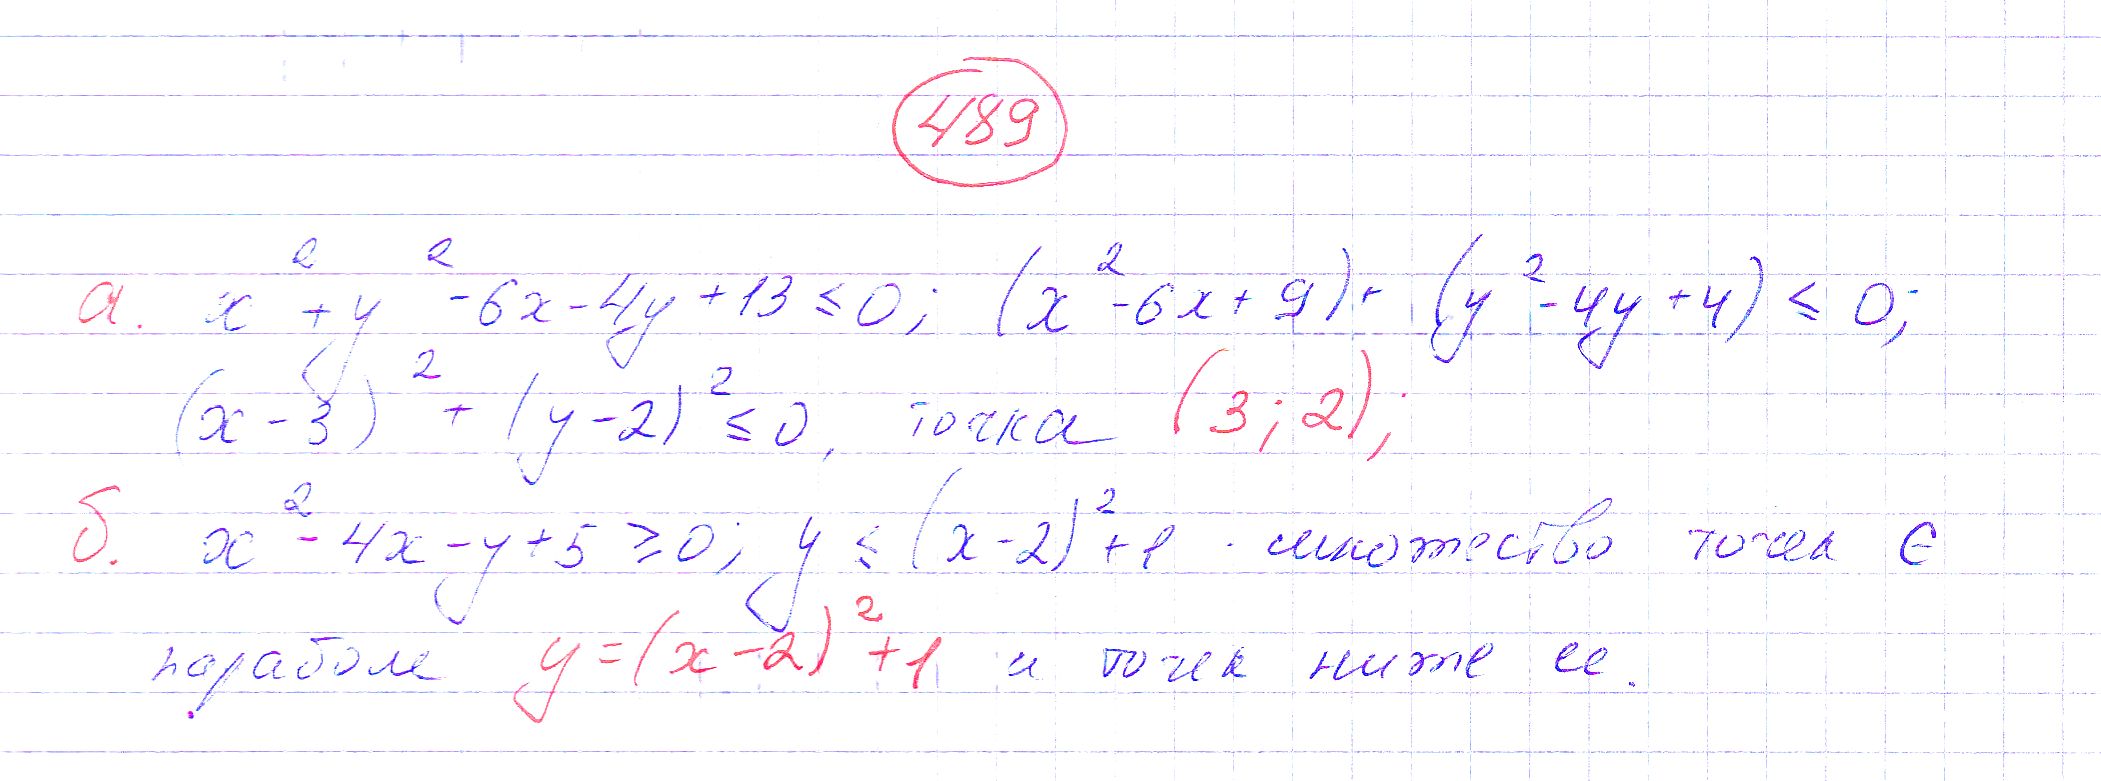 489
а. x² + y² - 6x - 4y + 13 ≤ 0; (x² - 6x + 9) + (y² - 4y + 4) ≤ 0;
(x - 3)² + (y - 2)² ≤ 0, точка (3; 2);
б. x² - 4x - y + 5 ≥ 0; y ≤ (x - 2)² + 1 - множество точек ∈
параболе y = (x - 2)² + 1 и точек ниже ее.